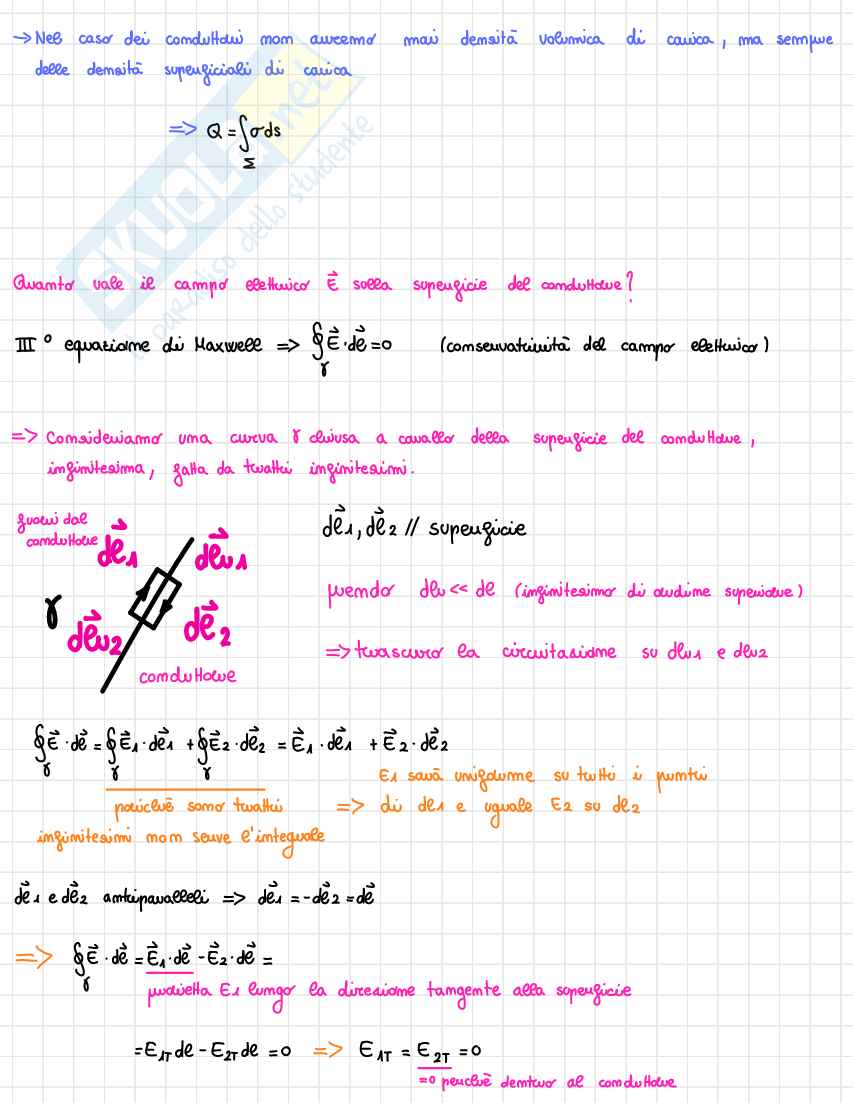 → Nel caso dei conduttori non avremo mai densità volumica di carica, ma sempre
delle densità superficiali di carica
=> Q = ∫ σ ds
Σ
SKUOLA.net
il paradiso dello studente
Quanto vale il campo elettrico E⃗ sulla superficie del conduttore?
III° equazione di Maxwell => ∮ E⃗ · dl⃗ = 0 (conservatività del campo elettrico)
γ
=> Consideriamo una curva γ chiusa a cavallo della superficie del conduttore,
infinitesima, fatta da tratti infinitesimi.
fuori dal
conduttore
dl⃗1
dlv⃗1
γ
dlv⃗2
dl⃗2
conduttore
dl⃗1, dl⃗2 // superficie
prendo dlv << dl (infinitesimo di ordine superiore)
=> trascuro la circuitazione su dlv1 e dlv2
∮ E⃗ · dl⃗ = ∮ E⃗1 · dl⃗1 + ∮ E⃗2 · dl⃗2 = E⃗1 · dl⃗1 + E⃗2 · dl⃗2
γ γ γ
poiché sono tratti
infinitesimi non serve l'integrale
=> E1 sarà uniforme su tutti i punti
di dl1 e uguale E2 su dl2
dl⃗1 e dl⃗2 antiparalleli => dl⃗1 = -dl⃗2 = dl⃗
=> ∮ E⃗ · dl⃗ = E⃗1 · dl⃗ - E⃗2 · dl⃗ =
γ
proietta E1 lungo la direzione tangente alla superficie
= E1T dl - E2T dl = 0 => E1T = E2T = 0
=0 perché dentro al conduttore